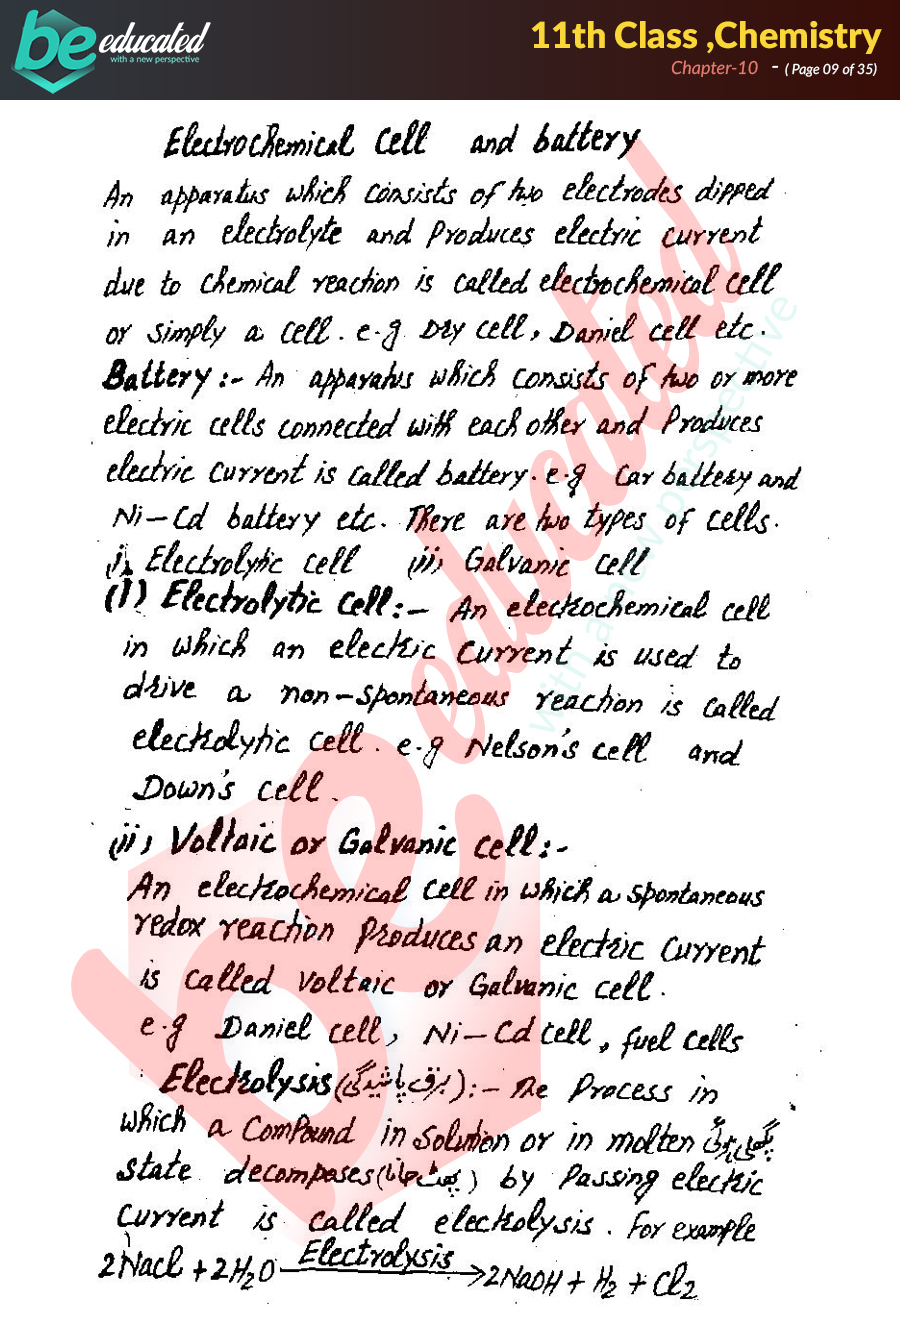 be educated
with a new perspective
11th Class ,Chemistry
Chapter-10 - ( Page 09 of 35)
Electrochemical Cell and battery
An apparatus which consists of two electrodes dipped
in an electrolyte and Produces electric current
due to chemical reaction is called electrochemical cell
or simply a cell. e.g Dry cell, Daniel cell etc.
Battery :- An apparatus which consists of two or more
electric cells connected with each other and Produces
electric current is called battery. e.g Car battery and
Ni-Cd battery etc. There are two types of cells.
i, Electrolytic cell (ii) Galvanic cell
(i) Electrolytic cell:- An electrochemical cell
in which an electric current is used to
drive a non-spontaneous reaction is called
electrolytic cell. e.g Nelson's cell and
Down's cell.
(ii) Voltaic or Galvanic cell:-
An electrochemical cell in which a spontaneous
redox reaction Produces an electric current
is called voltaic or Galvanic cell.
e.g Daniel cell, Ni-Cd cell, fuel cells
Electrolysis (برق پاشیدگی):- The Process in
which a compound in solution or in molten
state decomposes (پھٹ جانا) by passing electric
current is called electrolysis. For example
2NaCl + 2H2O Electrolysis → 2NaOH + H2 + Cl2
be educated
with a new perspective